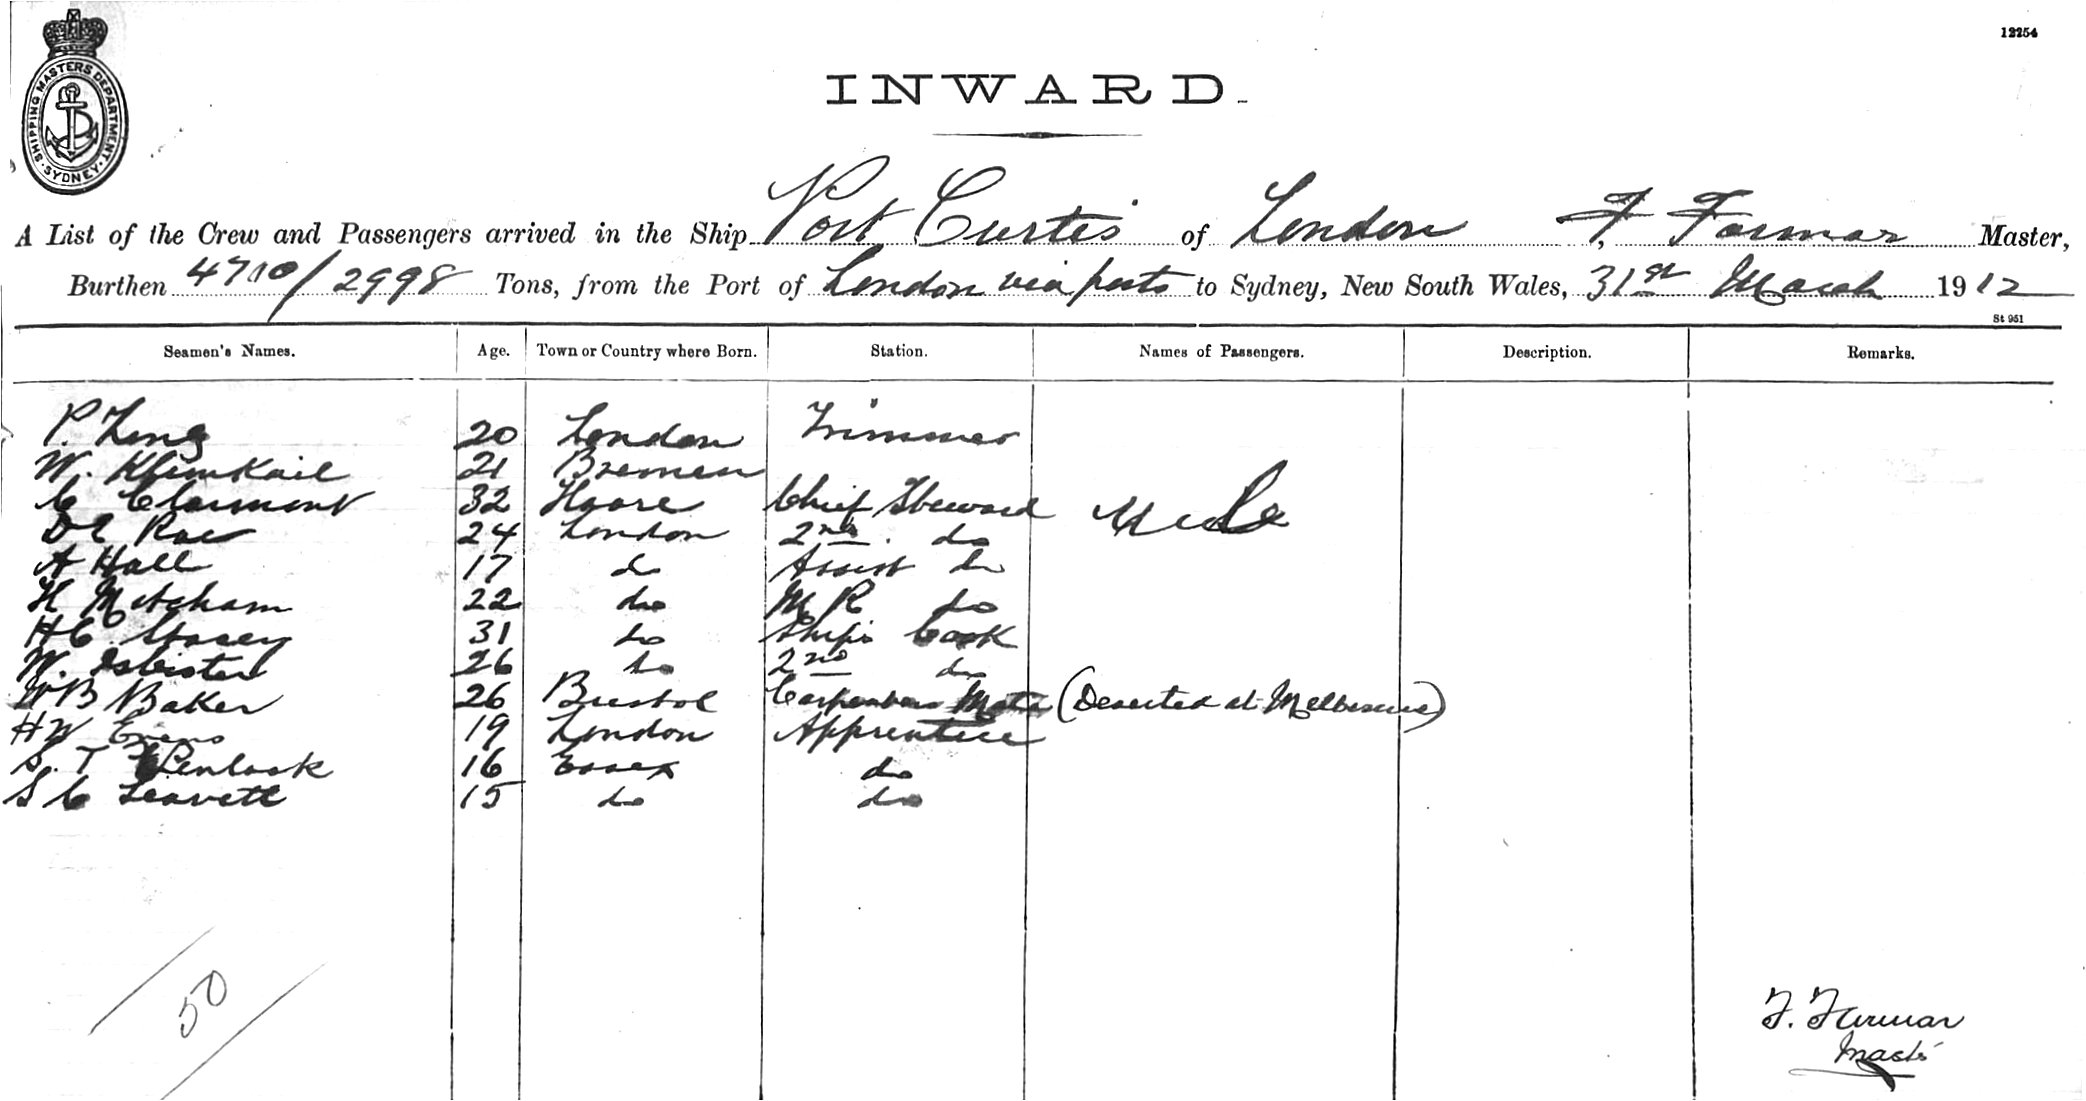 12254
SHIPPING MASTERS DEPARTMENT · SYDNEY ·
INWARD.
A List of the Crew and Passengers arrived in the Ship Port Curtis of London, F Farmar Master,
Burthen 4710/2998 Tons, from the Port of London via ports to Sydney, New South Wales, 31st March 1912
St 951
Seamen's Names. Age. Town or Country where Born. Station. Names of Passengers. Description. Remarks.
P. 20 London Trimmer
W. 21 Bremen
C Clarmont 32 Chief Steward
D E Rae 24 London 2nd do
Nil
A Hall 17 do Assist do
H Matcham 22 do M R do
H C Stacey 31 do Ship's Cook
W. Isbister 26 do 2nd do
W B Baker 26 Bristol Carpenters Mate (Deserted at Melbourne)
H W Evans 19 London Apprentice
S. T Penlock 16 Essex do
S C Leavett 15 do do
50
F. Farmar
Master